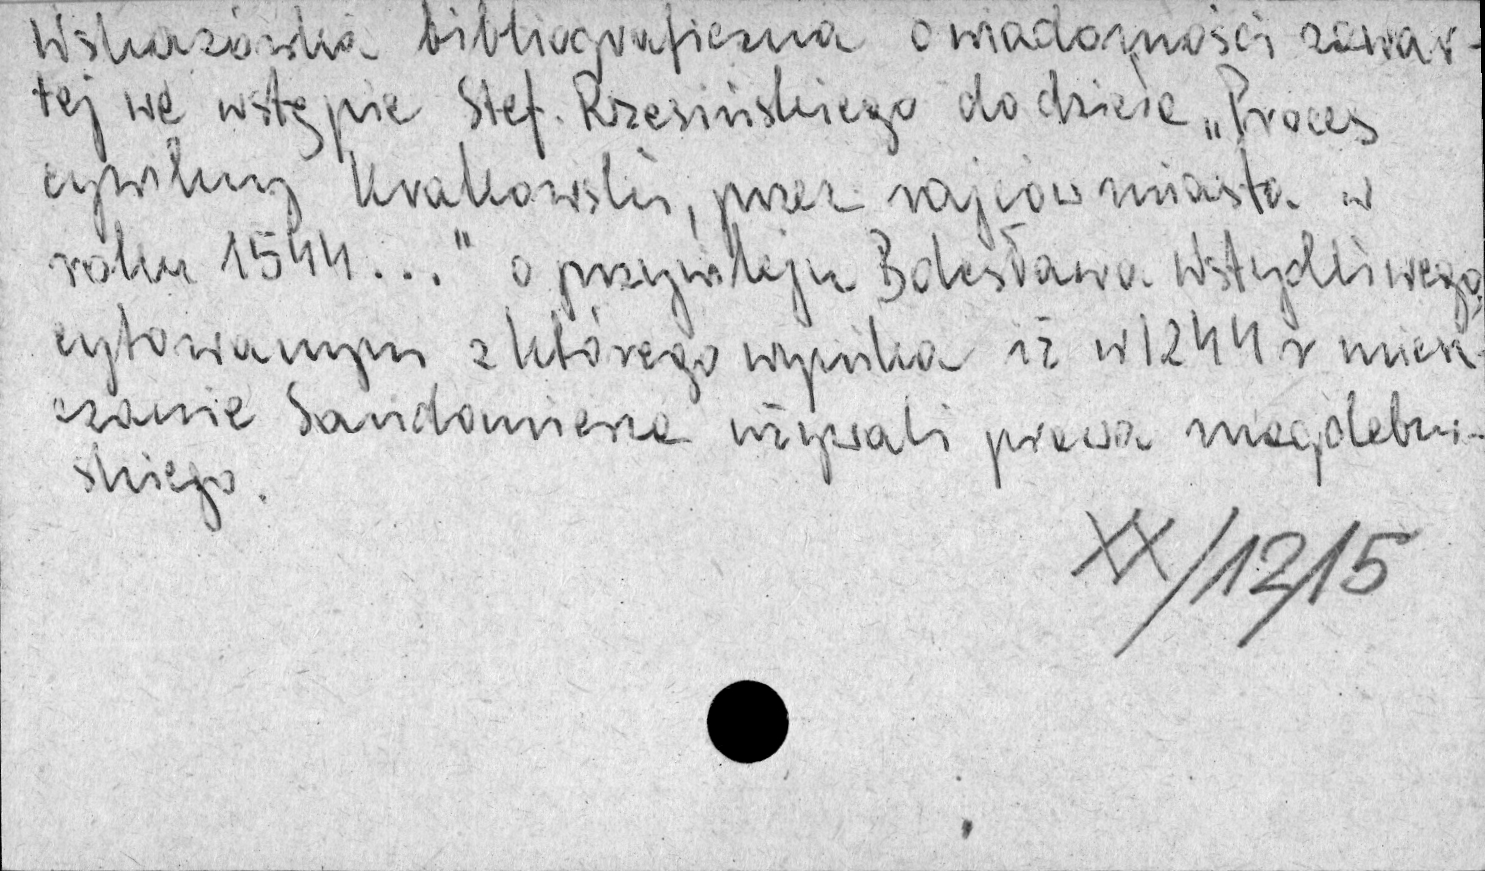 Wskazówka bibliograficzna o wiadomości zawar-
tej we wstępie Stef. Rzesińskiego do dzieła „Proces
cywilny krakowski, przez rajców miasta w
roku 1544..." o przywileju Bolesława Wstydliwego,
cytowanym z którego wynika iż w 1244 r miesz-
czanie Sandomierza używali prawa magdebur-
skiego.
XX/12/5